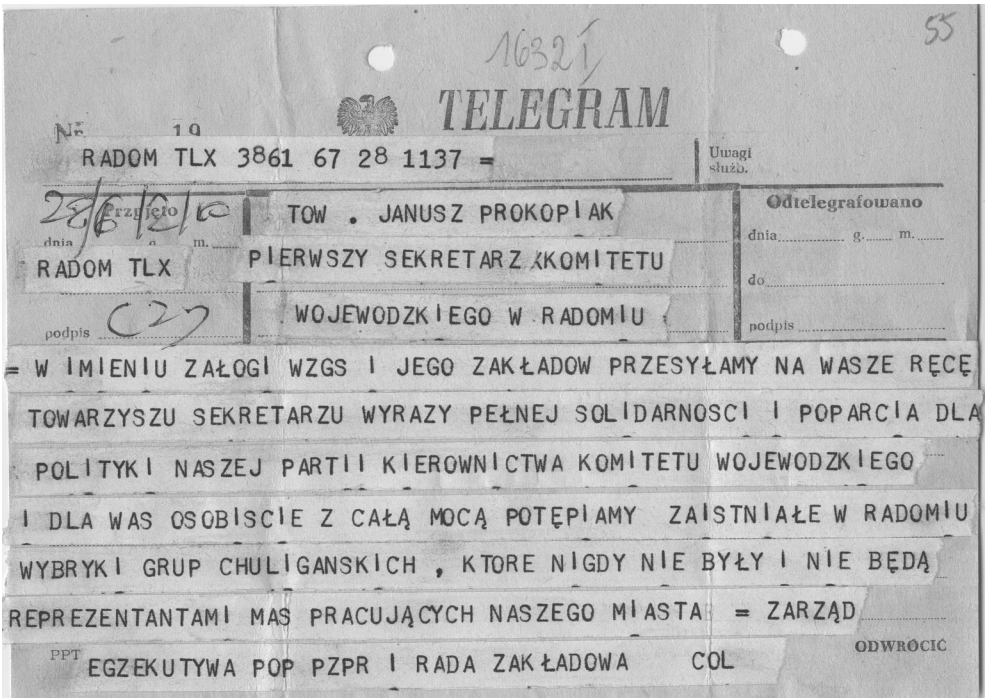 55
1632
TELEGRAM
Nr 19
RADOM TLX 3861 67 28 1137 =
Uwagi
służb.
Przyjęto
28/6/12/10
dnia g. m.
TOW . JANUSZ PROKOPIAK
Odtelegrafowano
dnia g. m.
RADOM TLX
PIERWSZY SEKRETARZ KOMITETU
do
WOJEWODZKIEGO W RADOMIU
podpis
podpis
= W IMIENIU ZAŁOGI WZGS I JEGO ZAKŁADOW PRZESYŁAMY NA WASZE RĘCĘ
TOWARZYSZU SEKRETARZU WYRAZY PEŁNEJ SOLIDARNOSCI I POPARCIA DLA
POLITYKI NASZEJ PARTII KIEROWNICTWA KOMITETU WOJEWODZKIEGO
I DLA WAS OSOBISCIE Z CAŁĄ MOCĄ POTĘPIAMY ZAISTNIAŁE W RADOMIU
WYBRYKI GRUP CHULIGANSKICH , KTORE NIGDY NIE BYŁY I NIE BĘDĄ
REPREZENTANTAMI MAS PRACUJĄCYCH NASZEGO MIASTA = ZARZĄD
PPT
ODWRÓCIĆ
EGZEKUTYWA POP PZPR I RADA ZAKŁADOWA COL